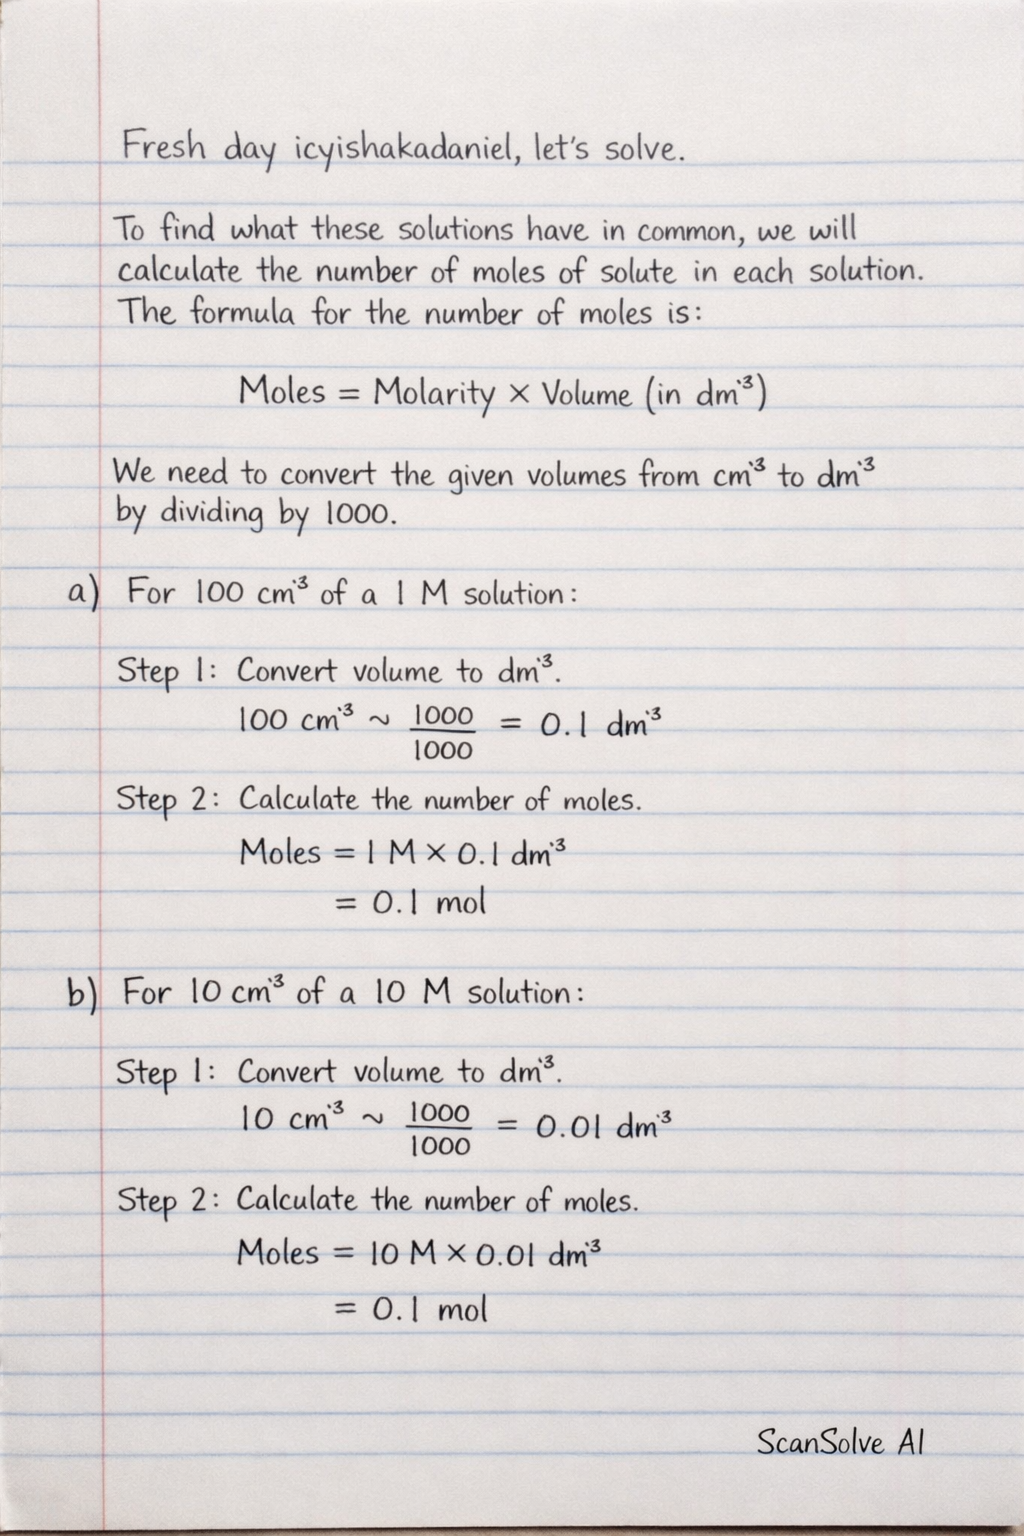 Fresh day icyishakadaniel, let's solve.
To find what these solutions have in common, we will
calculate the number of moles of solute in each solution.
The formula for the number of moles is:
Moles = Molarity × Volume (in dm³)
We need to convert the given volumes from cm³ to dm³
by dividing by 1000.
a) For 100 cm³ of a 1 M solution:
Step 1: Convert volume to dm³.
100 cm³ ~ 1000/1000 = 0.1 dm³
Step 2: Calculate the number of moles.
Moles = 1 M × 0.1 dm³
= 0.1 mol
b) For 10 cm³ of a 10 M solution:
Step 1: Convert volume to dm³.
10 cm³ ~ 1000/1000 = 0.01 dm³
Step 2: Calculate the number of moles.
Moles = 10 M × 0.01 dm³
= 0.1 mol
ScanSolve AI